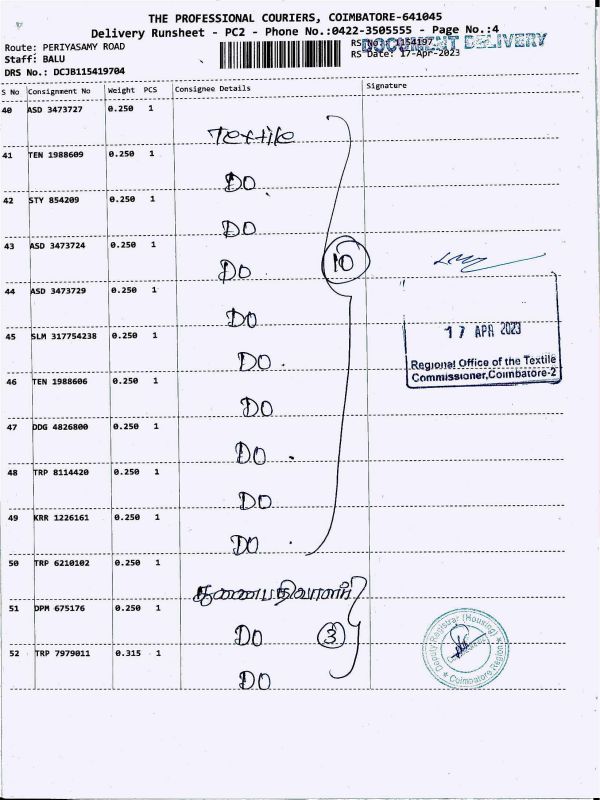 THE PROFESSIONAL COURIERS, COIMBATORE-641045
Delivery Runsheet - PC2 - Phone No.:0422-3505555 - Page No.:4
Route: PERIYASAMY ROAD
RS No: 1154197
DOCUMENT DELIVERY
Staff: BALU
RS Date: 17-Apr-2023
DRS No.: DCJB115419704
S No Consignment No Weight PCS Consignee Details Signature
40 ASD 3473727 0.250 1
Textile
41 TEN 1988609 0.250 1
DO
42 STY 854209 0.250 1
DO
43 ASD 3473724 0.250 1
DO
10
44 ASD 3473729 0.250 1
DO
17 APR 2023
45 SLM 317754238 0.250 1
DO
Regional Office of the Textile
Commissioner, Coimbatore-2
46 TEN 1988606 0.250 1
DO
47 DDG 4826800 0.250 1
DO
48 TRP 8114420 0.250 1
DO
49 KRR 1226161 0.250 1
DO
50 TRP 6210102 0.250 1
துணைபதிவாளர்
51 DPM 675176 0.250 1
DO
3
52 TRP 7979011 0.315 1
DO
Deputy Registrar (Housing)
Coimbatore Region